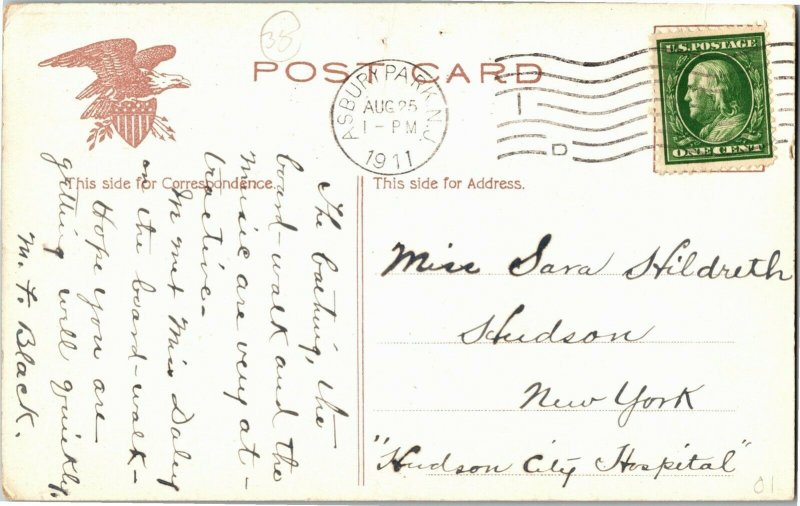 35
POST CARD
ASBURY PARK, N.J.
AUG 25
1 - PM
1911
1
D
U.S. POSTAGE
ONE CENT
This side for Correspondence.
This side for Address.
The bathing, the
board-walk and the
music are very at-
tractive-
met Miss Daley
on the board-walk-
Hope you are
getting well quickly,
M. F. Black.
Miss Sara Hildreth
Hudson
New York
"Hudson City Hospital"
01